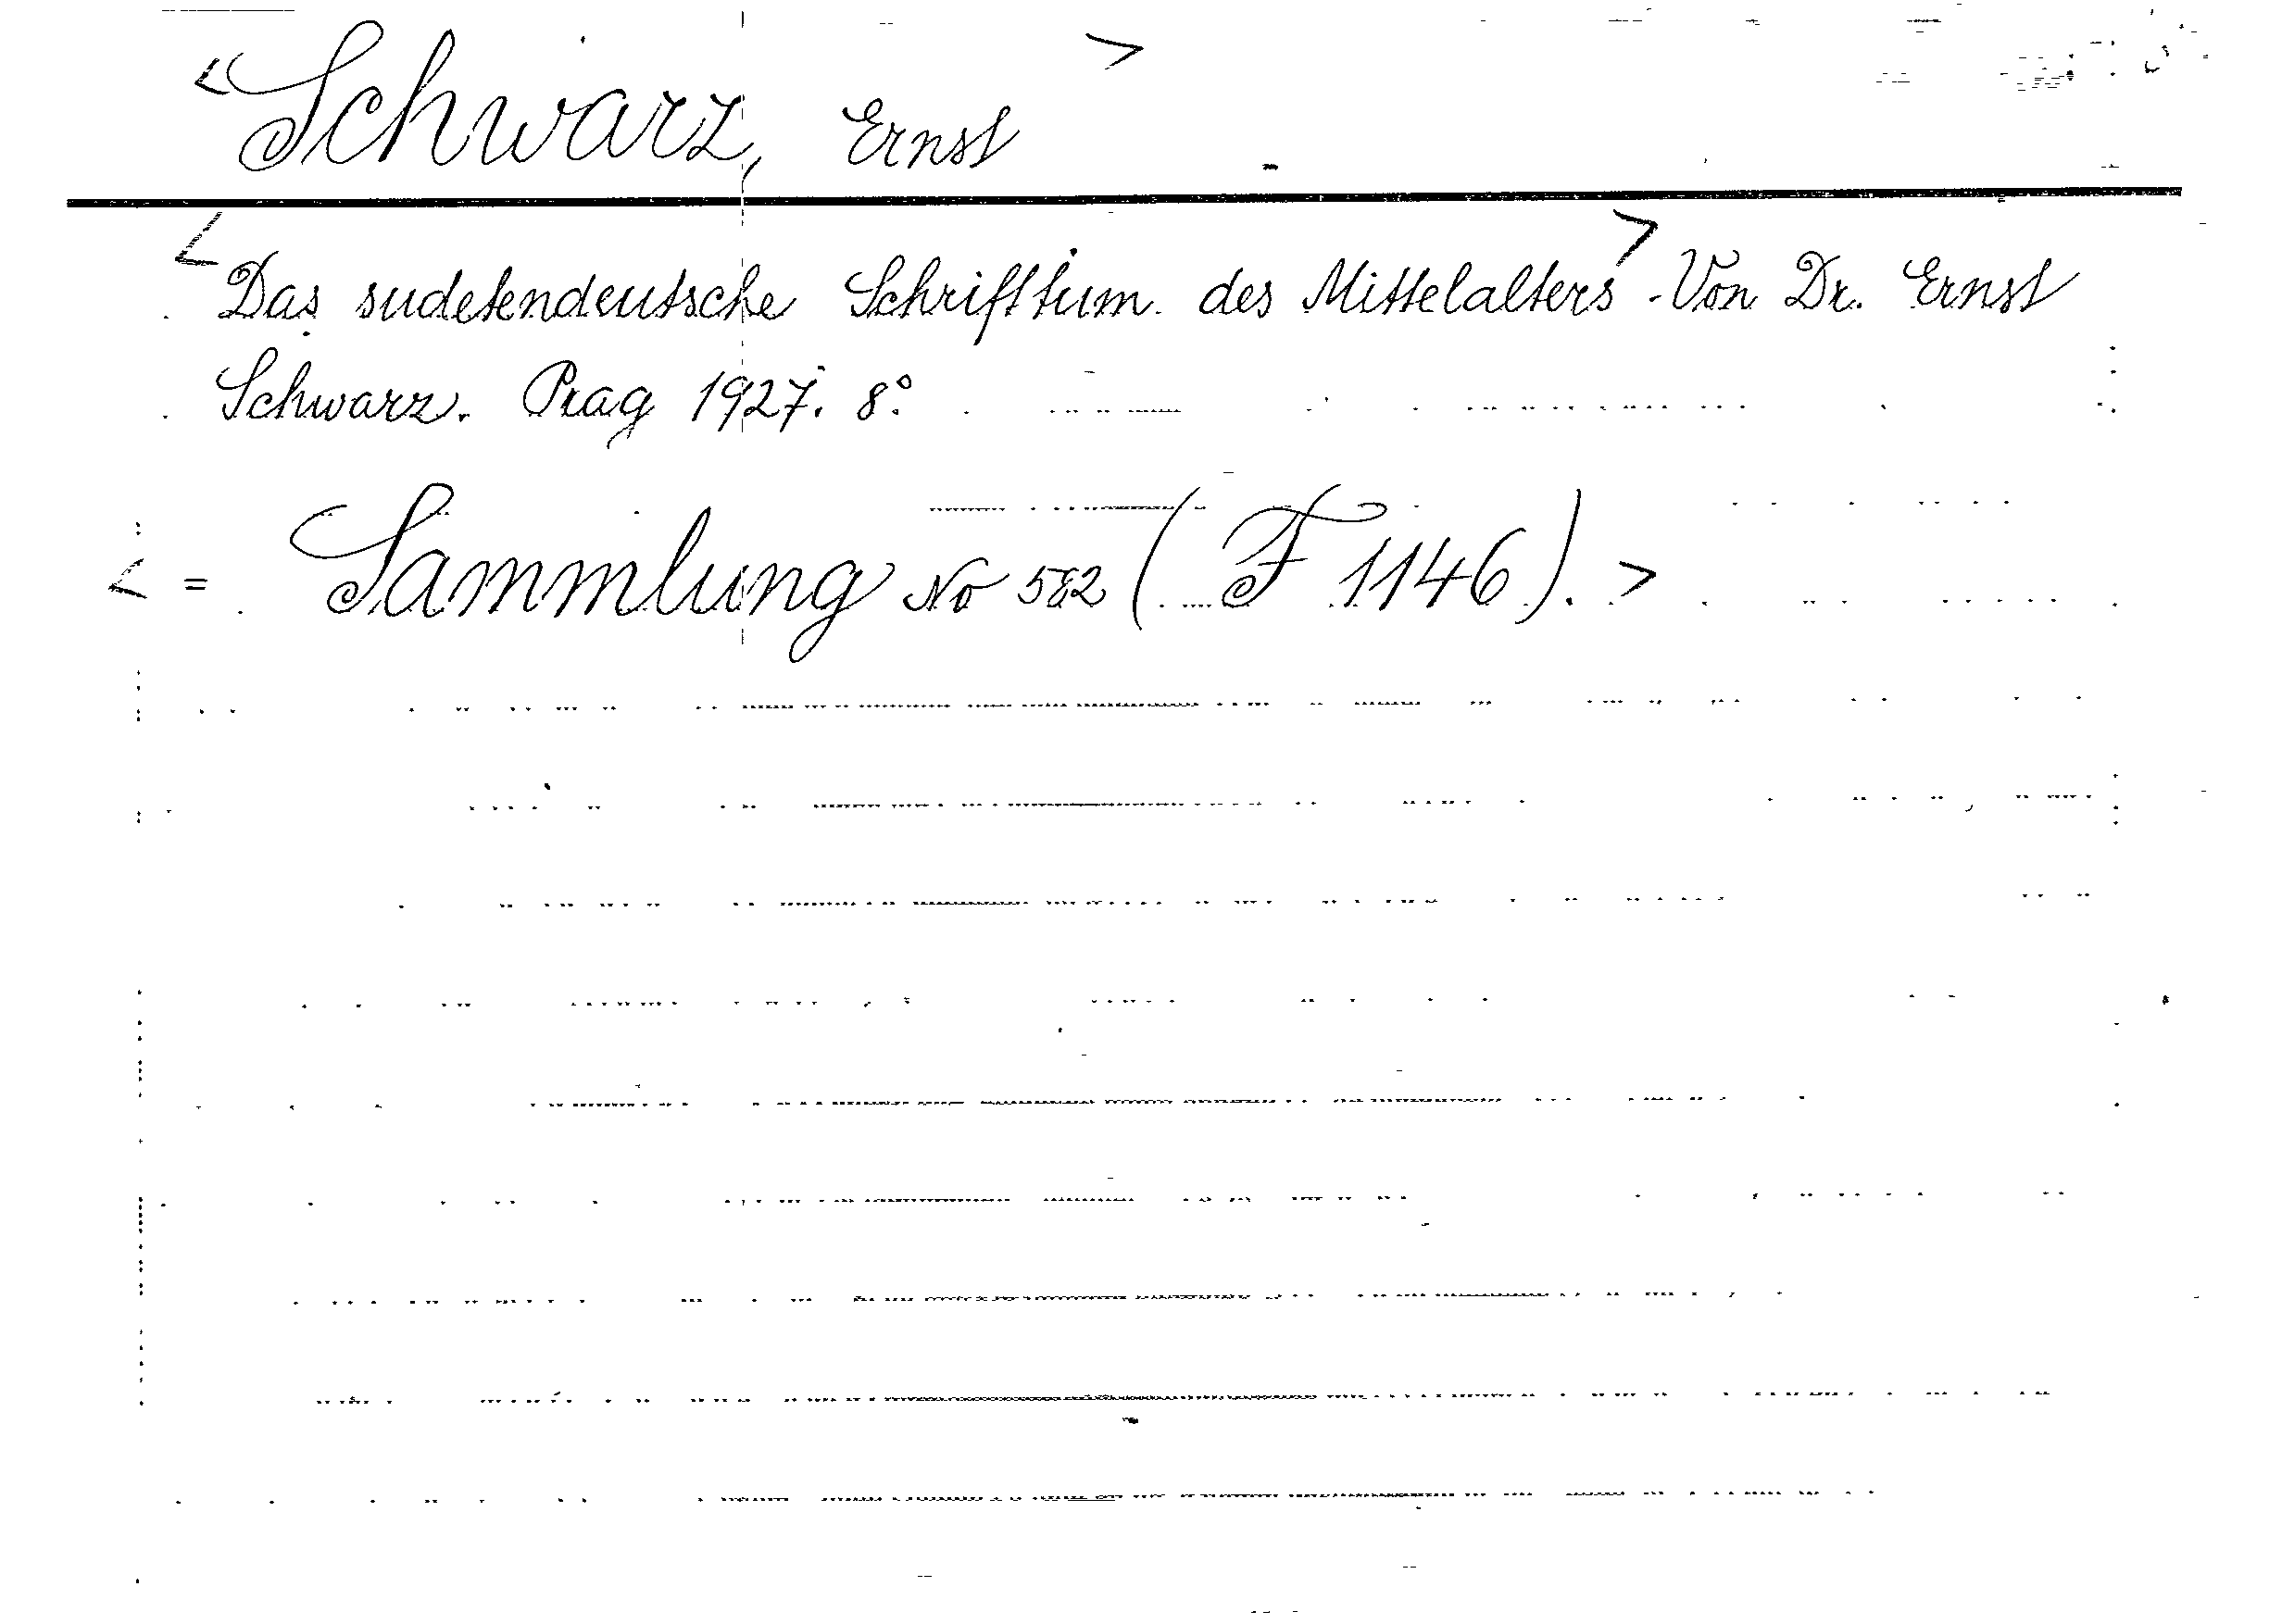 <Schwarz, Ernst>
<Das sudetendeutsche Schrifttum des Mittelalters>. Von Dr. Ernst
Schwarz. Prag 1927. 8°.
<= Sammlung No 582 (F 1146).>